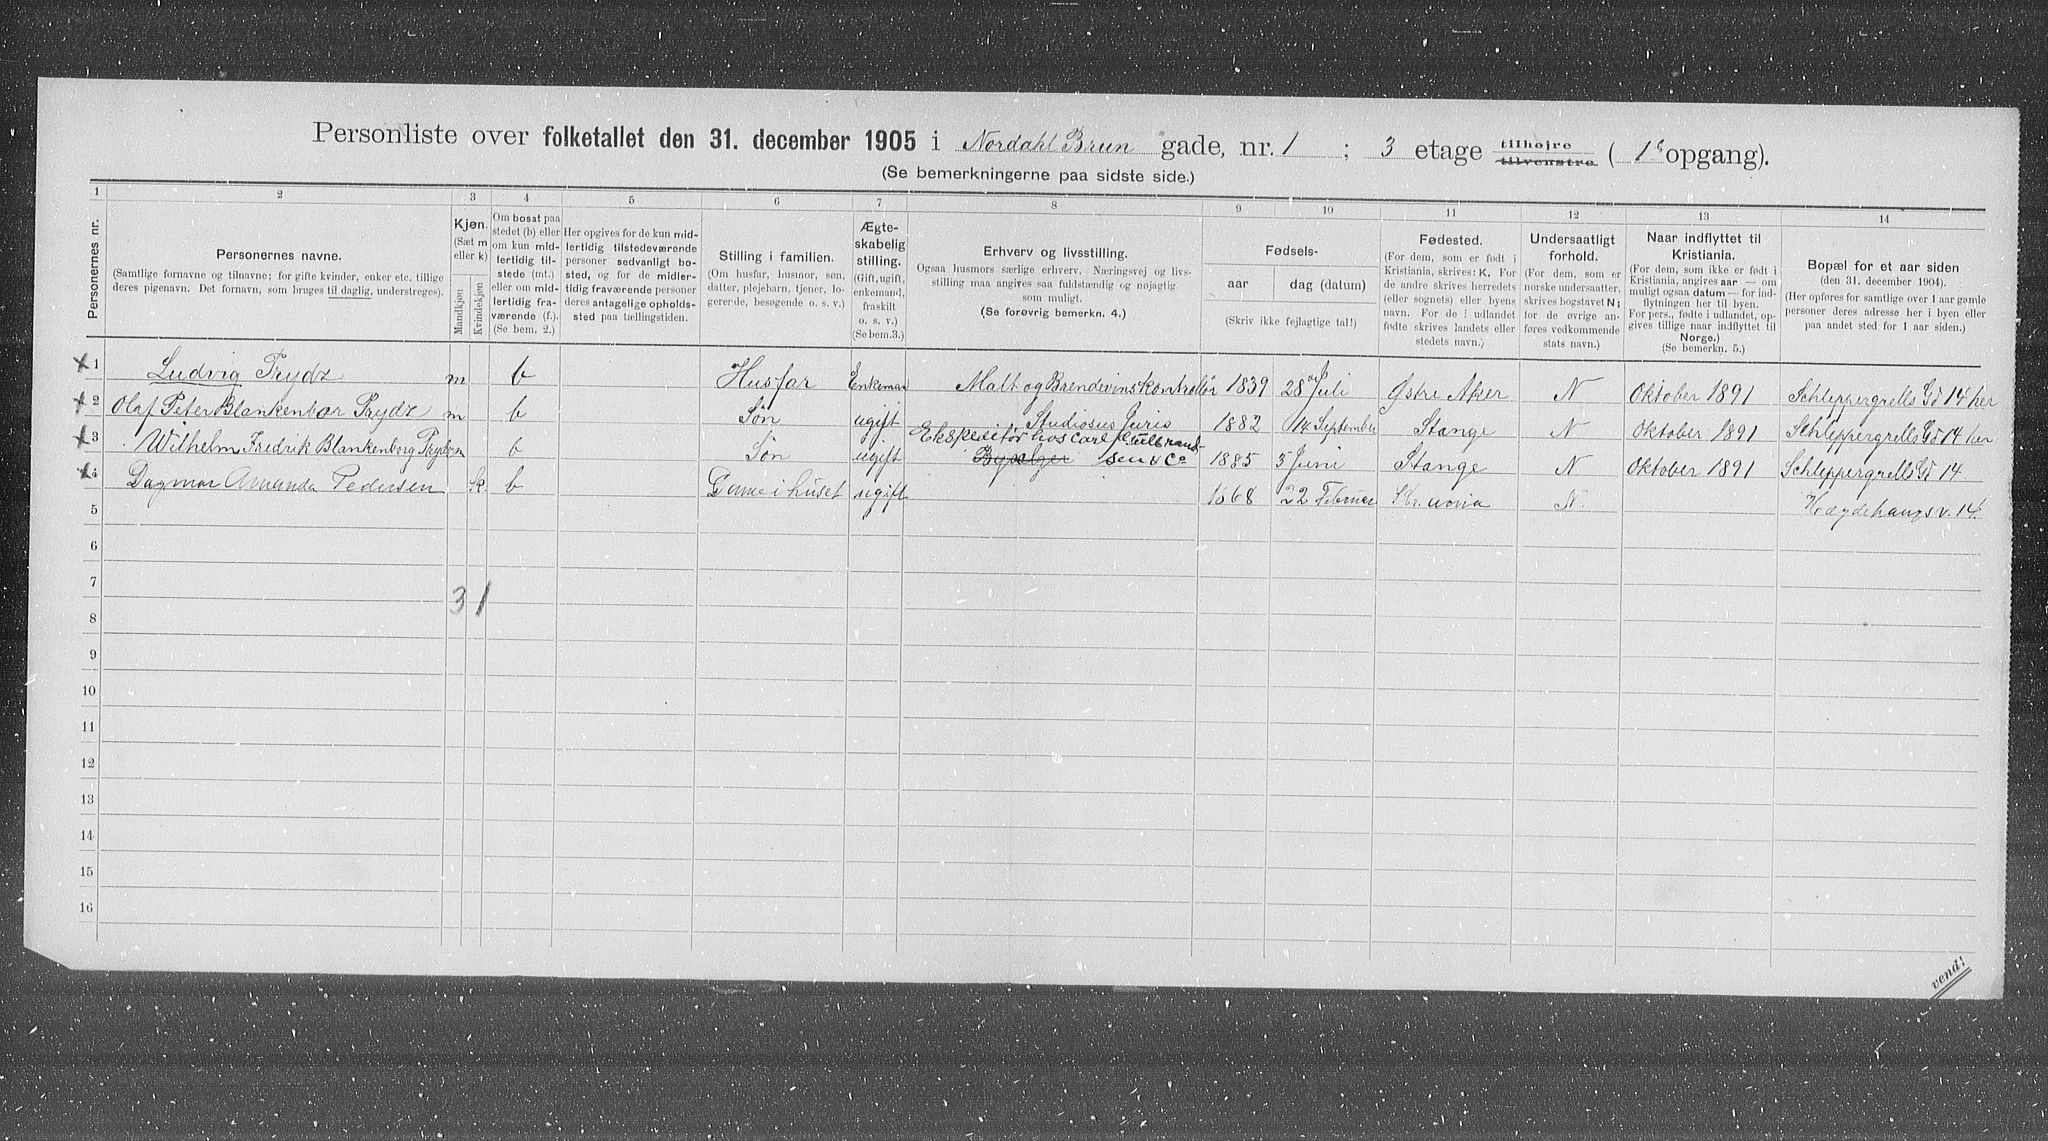 Personliste over folketallet den 31. december 1905 i Nordahl Brun gade, nr. 1 ; 3 etage tilhøjre tilvenstre ( 1ˢ opgang).
(Se bemerkningerne paa sidste side.)
1 2 3 4 5 6 7 8 9 10 11 12 13 14
Personernes nr.
Personernes navne.
(Samtlige fornavne og tilnavne; for gifte kvinder, enker etc. tillige
deres pigenavn. Det fornavn, som bruges til daglig, understreges).
Kjøn.
(Sæt m
eller k)
Mandkjøn
Kvindekjøn
Om bosat paa
stedet (b) eller
om kun midlertidig
tilstede (mt.)
eller om midlertidig
fraværende (f.).
(Se bem. 2.)
Her opgives for de kun midlertidig
tilstedeværende
personer sedvanlig bosted,
og for de midlertidig
fraværende personer
deres antagelige opholdssted
paa tællingstiden.
Stilling i familien.
(Om husfar, husmor, søn,
datter, plejebarn, tjener, logerende,
besøgende o. s. v.)
Ægteskabelig
stilling.
(Gift, ugift,
enkemand,
fraskilt
o. s. v.)
(Se bem. 3.)
Erhverv og livsstilling.
Ogsaa husmors særlige erhverv. Næringsvej og livsstilling
maa angives saa fuldstændig og nøjagtig
som muligt.
(Se forøvrig bemerkn. 4.)
Fødsels-
aar dag (datum)
(Skriv ikke fejlagtige tal!)
Fødested.
(For dem, som er født i
Kristiania, skrives: K. For
de andre skrives herredets
(eller sognets) eller byens
navn. For de i udlandet
fødte skrives landets eller
stedets navn.)
Undersaatligt
forhold.
(For dem, som er
norske undersaatter,
skrives bogstavet N;
for de øvrige anføres
vedkommende
stats navn.)
Naar indflyttet til
Kristiania.
(For dem, som ikke er født i
Kristiania, angives aar — om
muligt ogsaa datum — for indflytningen
her til byen.
For pers., født i udlandet, opgives
tillige naar indflyttet til
Norge.)
(Se bemerkn. 5.)
Bopæl for et aar siden
(den 31. december 1904).
(Her opføres for samtlige over 1 aar gamle
personer deres adresse her i byen eller
paa andet sted for 1 aar siden.)
1 Ludvig Trydz m b Husfar Enkeman Malt og Brendevinskontrollør 1839 28 Juli Østre Aker N Oktober 1891 Schleppergrells Gd 14 her
2 Olaf Peter Blankenbor Trydz m b Søn ugift Studiosus Juris 1882 14 September Stange N Oktober 1891 Schleppergrells Gd 14 her
3 Wilhelm Fredrik Blankenborg Trydz m b Søn ugift Ekspeditør hos Carl Gulbrandsen & Co 1885 5 Juni Stange N Oktober 1891 Schleppergrells Gd 14.
4 Dagmar Amanda Pedersen k. b Dame i huset ugift 1868 22 Februar N. Hægdehaugsv. 14.
5
6
7
3 1
8
9
10
11
12
13
14
15
16
vend!